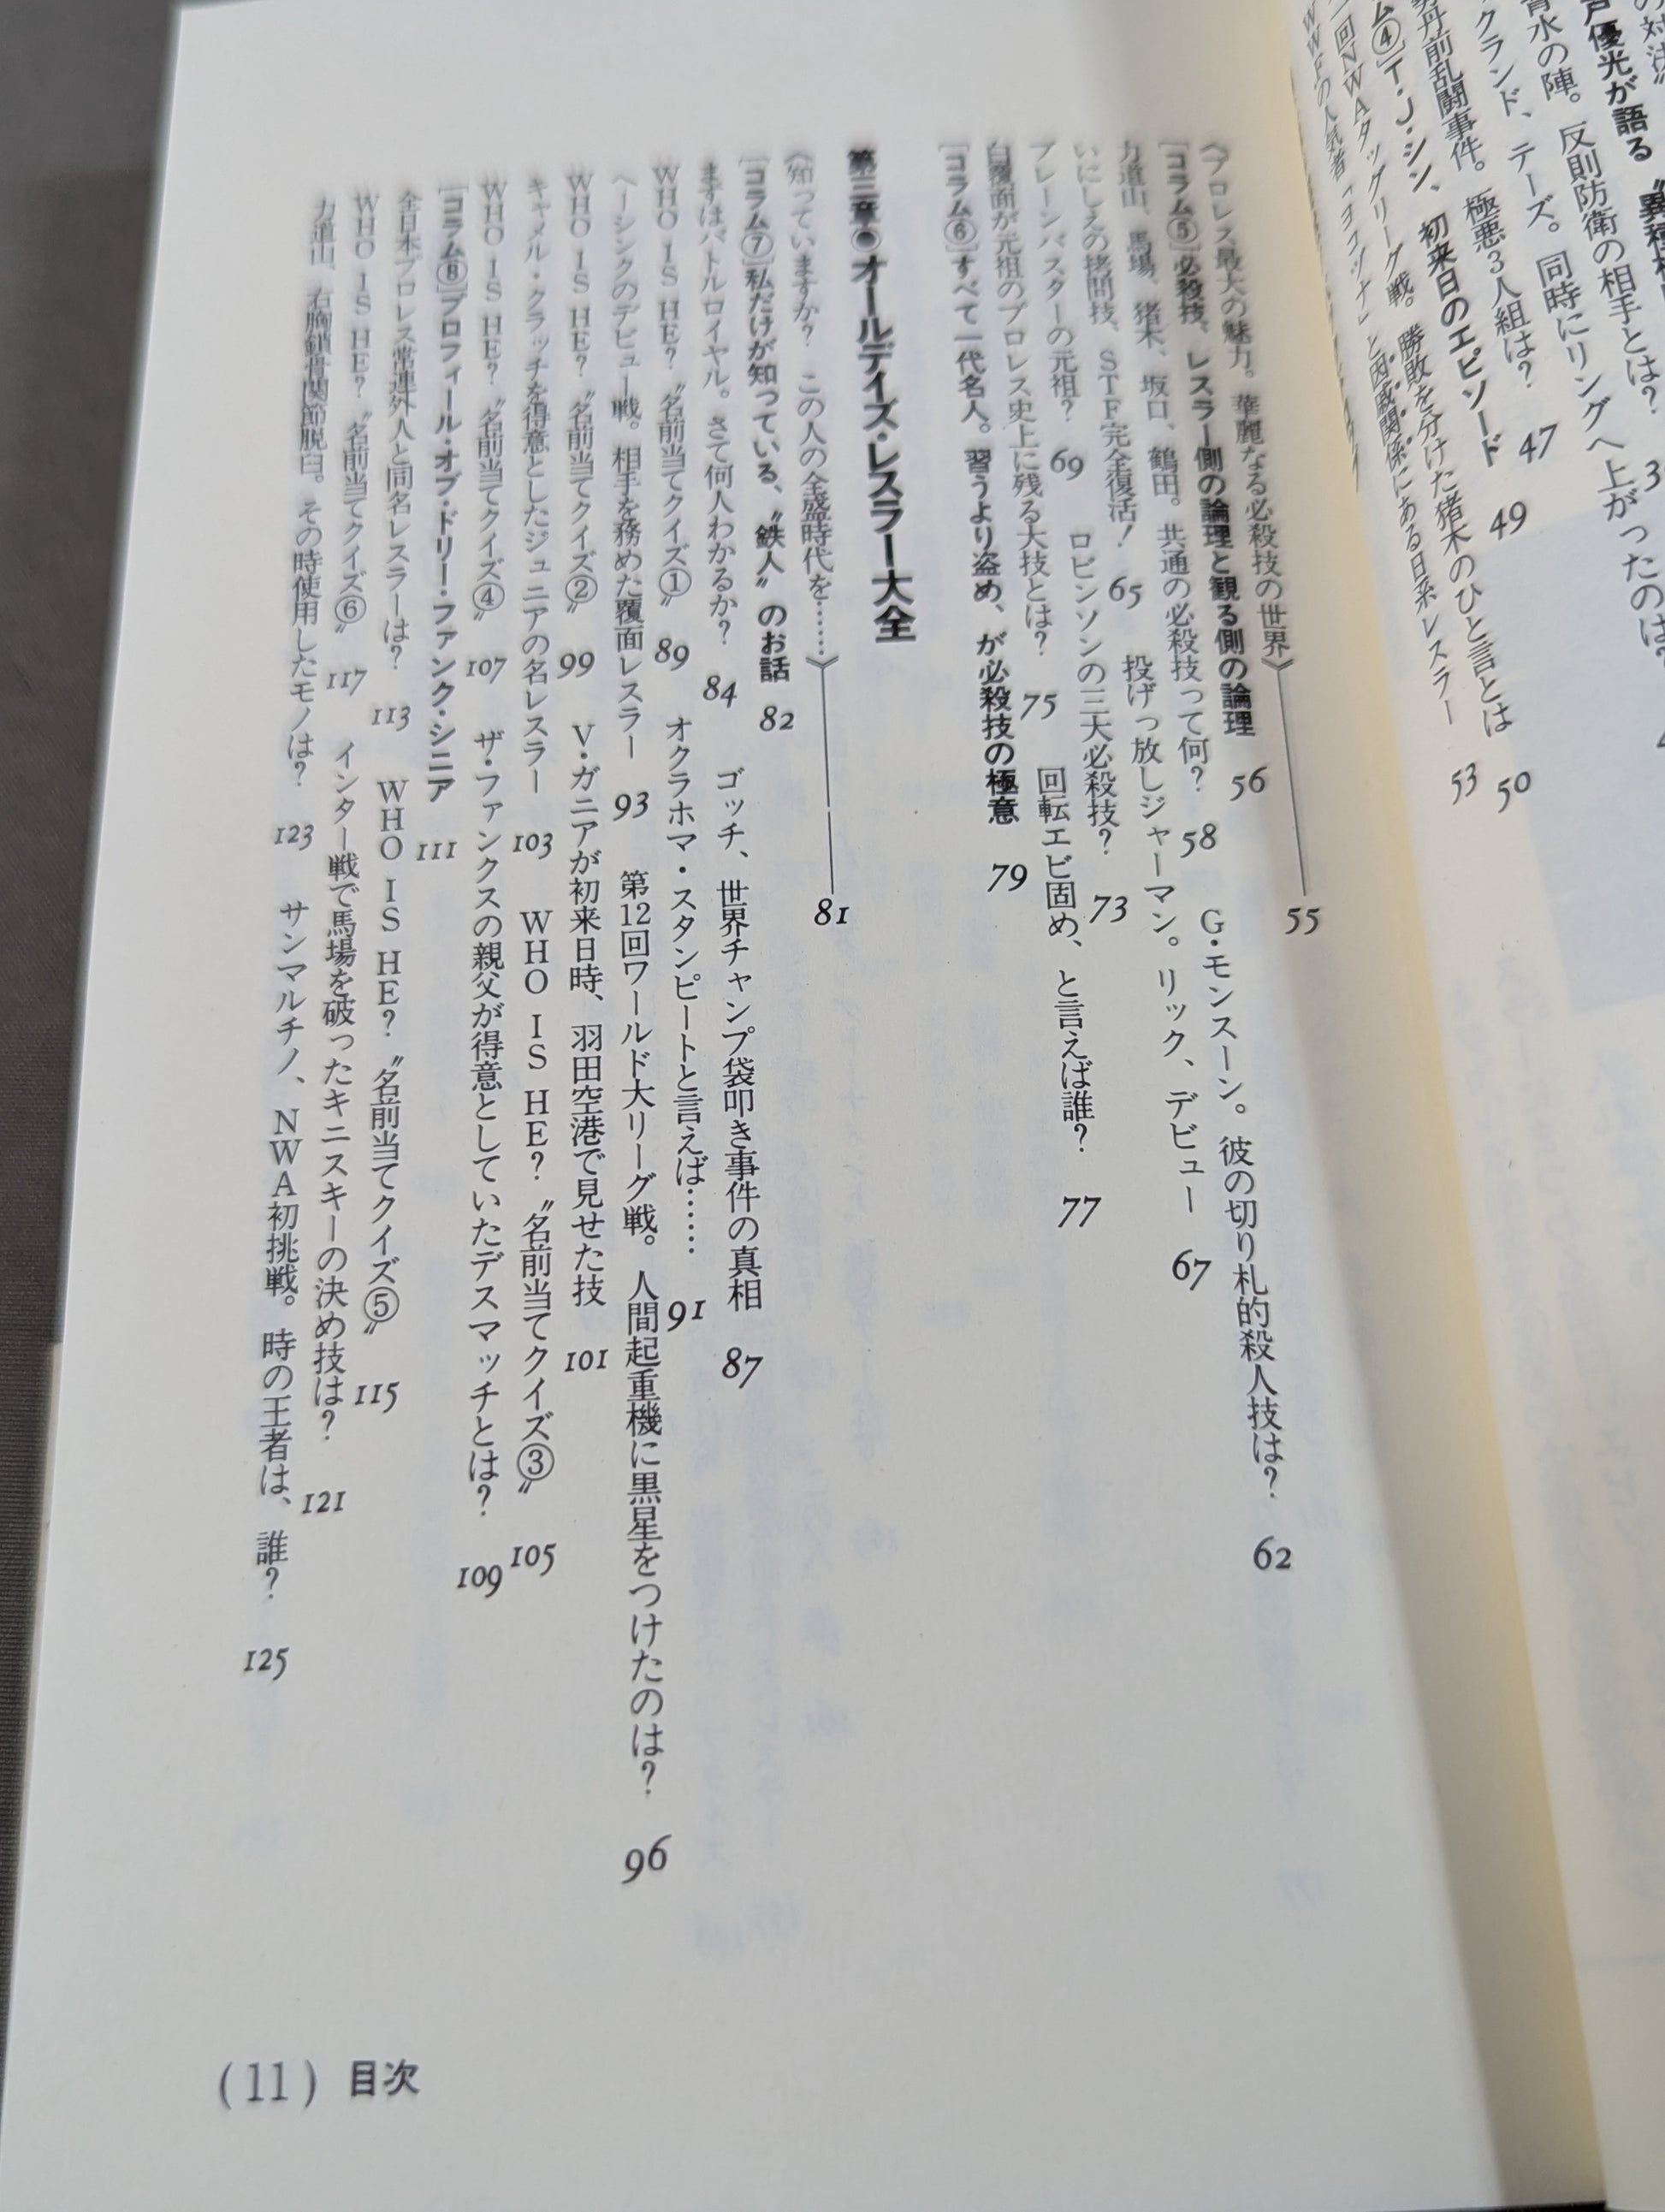 戸優光が語る
の対決
青水の陣。反則防衛の相手とは？
クランド、テーズ。同時にリングへ上がったのは？
丹前乱闘事件。極悪3人組は？ 47
ム④]T・J・シン、初来日のエピソード 49
回NWAタッグリーグ戦。勝敗を分けた猪木のひと言とは 50
WWFの人気者「ヨコヅナ」と因戚関係にある日系レスラー 53
〈プロレス最大の魅力。華麗なる必殺技の世界〉 55
[コラム⑤]必殺技、レスラー側の論理と観る側の論理 56
力道山、馬場、猪木、坂口、鶴田。共通の必殺技って何？ 58 G・モンスーン。彼の切り札的殺人技は？ 62
いにしえの拷問技、STF完全復活！ 65 投げっ放しジャーマン。リック、デビュー 67
ブレーンバスターの元祖？ 69 ロビンソンの三大必殺技？ 73
白覆面が元祖のプロレス史上に残る大技とは？ 75 回転エビ固め、と言えば誰？ 77
[コラム⑥]すべて一代名人。習うより盗め、が必殺技の極意 79
第三章●オールデイズ・レスラー大全
〈知っていますか？ この人の全盛時代を……〉 81
[コラム⑦]私だけが知っている、〝鉄人〟のお話 82
まずはバトルロイヤル。さて何人わかるか？ 84 ゴッチ、世界チャンプ袋叩き事件の真相 87
WHO IS HE？〝名前当てクイズ①〟 89 オクラホマ・スタンピートと言えば…… 91
ヘーシンクのデビュー戦。相手を務めた覆面レスラー 93 第12回ワールド大リーグ戦。人間起重機に黒星をつけたのは？ 96
WHO IS HE？〝名前当てクイズ②〟 99 V・ガニアが初来日時、羽田空港で見せた技 101
キャメル・クラッチを得意としたジュニアの名レスラー 103 WHO IS HE？〝名前当てクイズ③〟 105
WHO IS HE？〝名前当てクイズ④〟 107 ザ・ファンクスの親父が得意としていたデスマッチとは？ 109
[コラム⑧]プロフィール・オブ・ドリー・ファンク・シニア 111
全日本プロレス常連外人と同名レスラーは？ 113 WHO IS HE？〝名前当てクイズ⑤〟 115
WHO IS HE？〝名前当てクイズ⑥〟 117 インター戦で馬場を破ったキニスキーの決め技は？ 121
力道山、右胸鎖骨関節脱臼。その時使用したモノは？ 123 サンマルチノ、NWA初挑戦。時の王者は、誰？ 125
(11) 目次